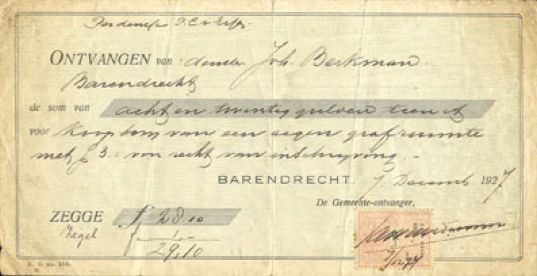 ONTVANGEN van den Joh. Berkman.
Barendrecht
de som van acht en twintig gulden tien ct
voor koopsom van een eigen grafruimte
met f 3. van recht van inschrijving. -
BARENDRECHT, 7 Decemb 1927
De Gemeente-ontvanger,
ZEGGE f 28.10
Zegel f -.1.-
29.10